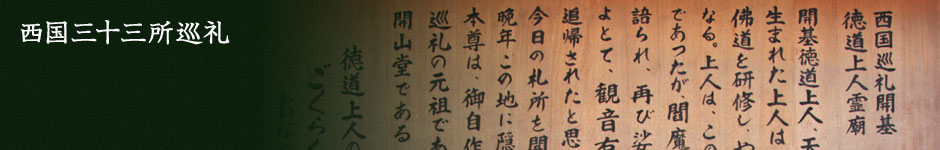 西国三十三所巡礼
西国巡礼開基
徳道上人霊廟
開基徳道上人、天
生まれた上人は
佛道を研修し、や
なる。上人は、この
であったが、閻魔
語られ、再び娑
よとて、観音有
追帰されたと思
今日の札所を開
晩年、この地に隠
本尊は、御自作
巡礼の元祖であ
開山堂である
徳道上人の
ごくらく